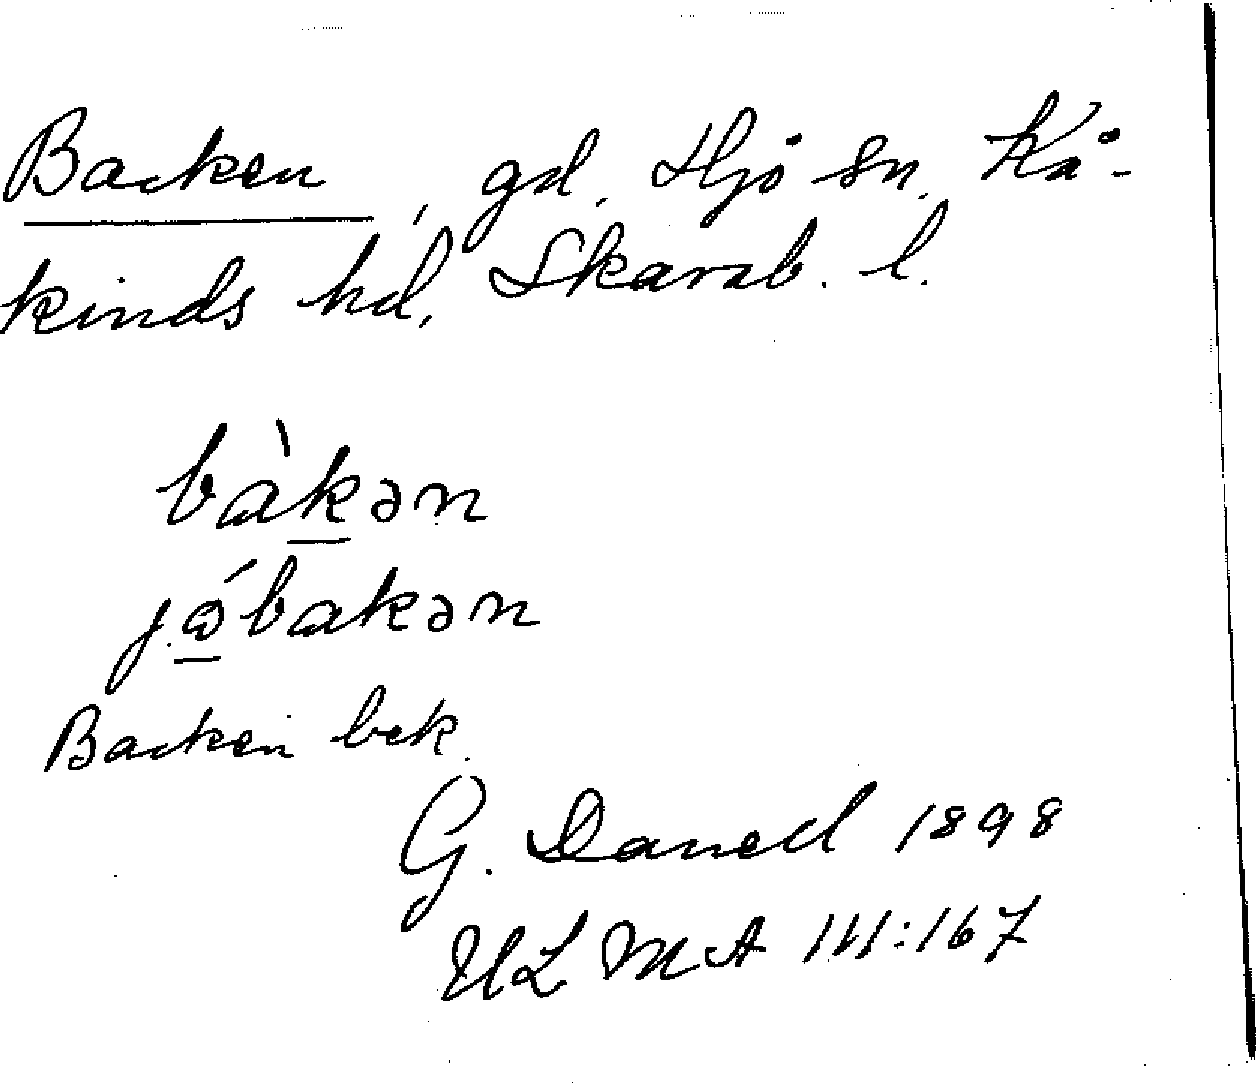 Backen, gd, Hjo sn, Kå-
kinds hd, Skarab. l.
bàkən
jó̱bakən
Backen bek.
G. Danell 1898
ULMA 111:167